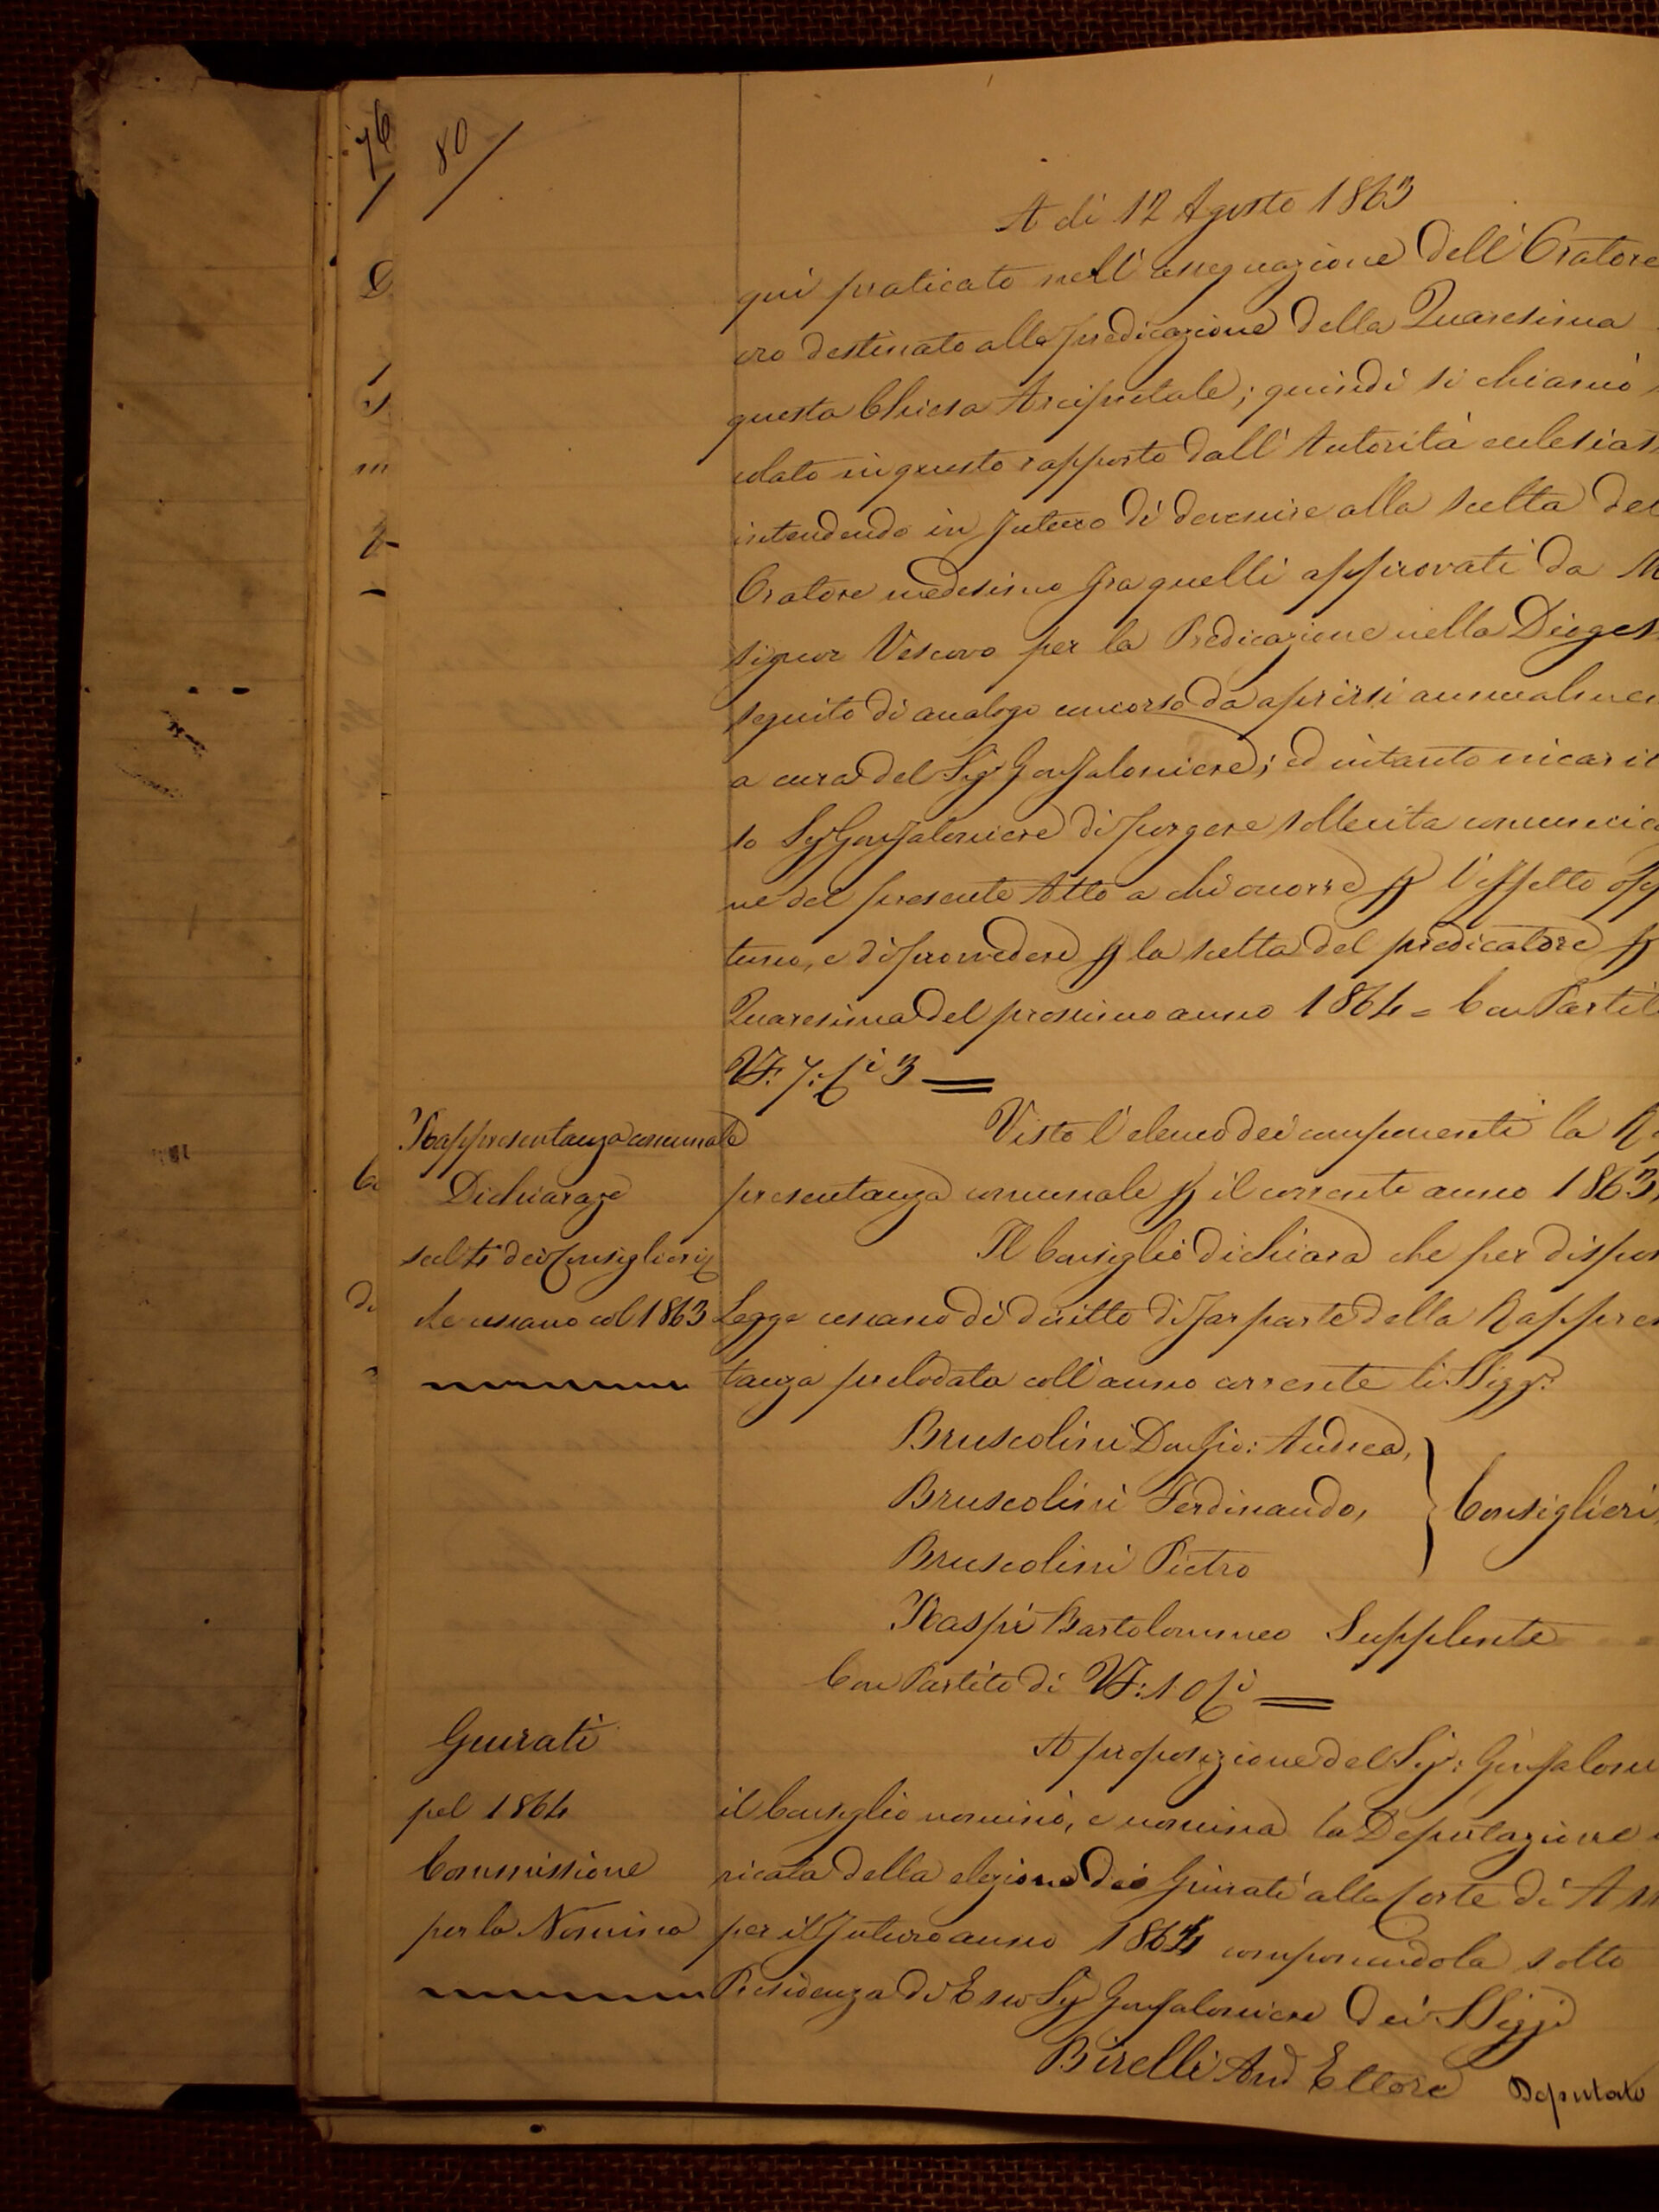 76
80
A dì 12 Agosto 1863
qui praticato nell'assegnazione dell'Oratore
cro destinato alla predicazione della Quaresima
questa Chiesa Arcipretale; quindi si chiamò
colato in questo rapporto dall'Autorità ecclesias
intendendo in futuro di devenire alla scelta del
Oratore medesimo fra quelli approvati da M
signor Vescovo per la Predicazione nella Dioges
seguito di analogo concorso da aprirsi annualmen
a cura del Sig Gonfaloniere; ed intanto incaric
so Sig Gonfaloniere di porgere sollecita comunica
ne del presente Atto a chi occorre p l'effetto opp
tuno, e di provvedere p la scelta del predicatore p
Quaresima del prossimo anno 1864 = Con Partit
VF: 7: Ci 3
Rappresentanza comunale
Dichiaraze
scelte dei Consiglieri
che cessano col 1863
Visto l'elenco dei componenti la Ra
presentanza comunale p il corrente anno 1863,
Il Consiglio dichiara che per dispos
Legge cessano di diritto di far parte della Rappres
tanza prelodata coll'anno corrente li SSigg:
Bruscolini Don Gio: Andrea,
Bruscolini Ferdinando,
Bruscolini Pietro
Consiglieri,
Raspi Bartolommeo Supplente
Con Partito di VF: 10 Ci
Giurati
pel 1864
Commissione
per la Nomina
A proposizione del Sig: Gonfaloni
il Consiglio nominò, e nomina la Deputazione
ricata della elezione dei Giurati alla Corte di Ass
per il futuro anno 1864 componendola sotto
Presidenza di Esso Sig Gonfaloniere dei SSiggi
Birelli And Ettore Deputato